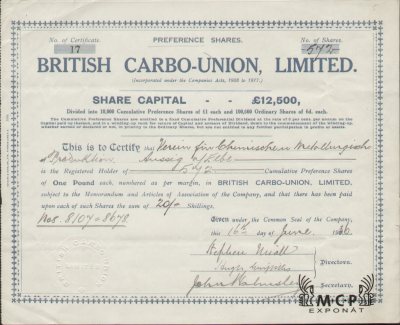 No. of Certificate. PREFERENCE SHARES. No. of Shares.
17 572
BRITISH CARBO-UNION, LIMITED.
(Incorporated under the Companies Acts, 1908 to 1917.)
SHARE CAPITAL - - £12,500,
Divided into 10,000 Cumulative Preference Shares of £1 each and 100,000 Ordinary Shares of 6d. each.
This is to Certify that Verein für Chemischen Metallurgische
Aussig a/Elbe
is the Registered Holder of 572 Cumulative Preference Shares
of One Pound each, numbered as per margin, in BRITISH CARBO-UNION, LIMITED,
subject to the Memorandum and Articles of Association of the Company, and that there has been paid
upon each of such Shares the sum of 20/- Shillings.
Nos. 8107 8678
Given under the Common Seal of the Company,
this 16th day of June 1926
Stephen Miall
Directors.
John
Secretary.
MCP
EXPONAT